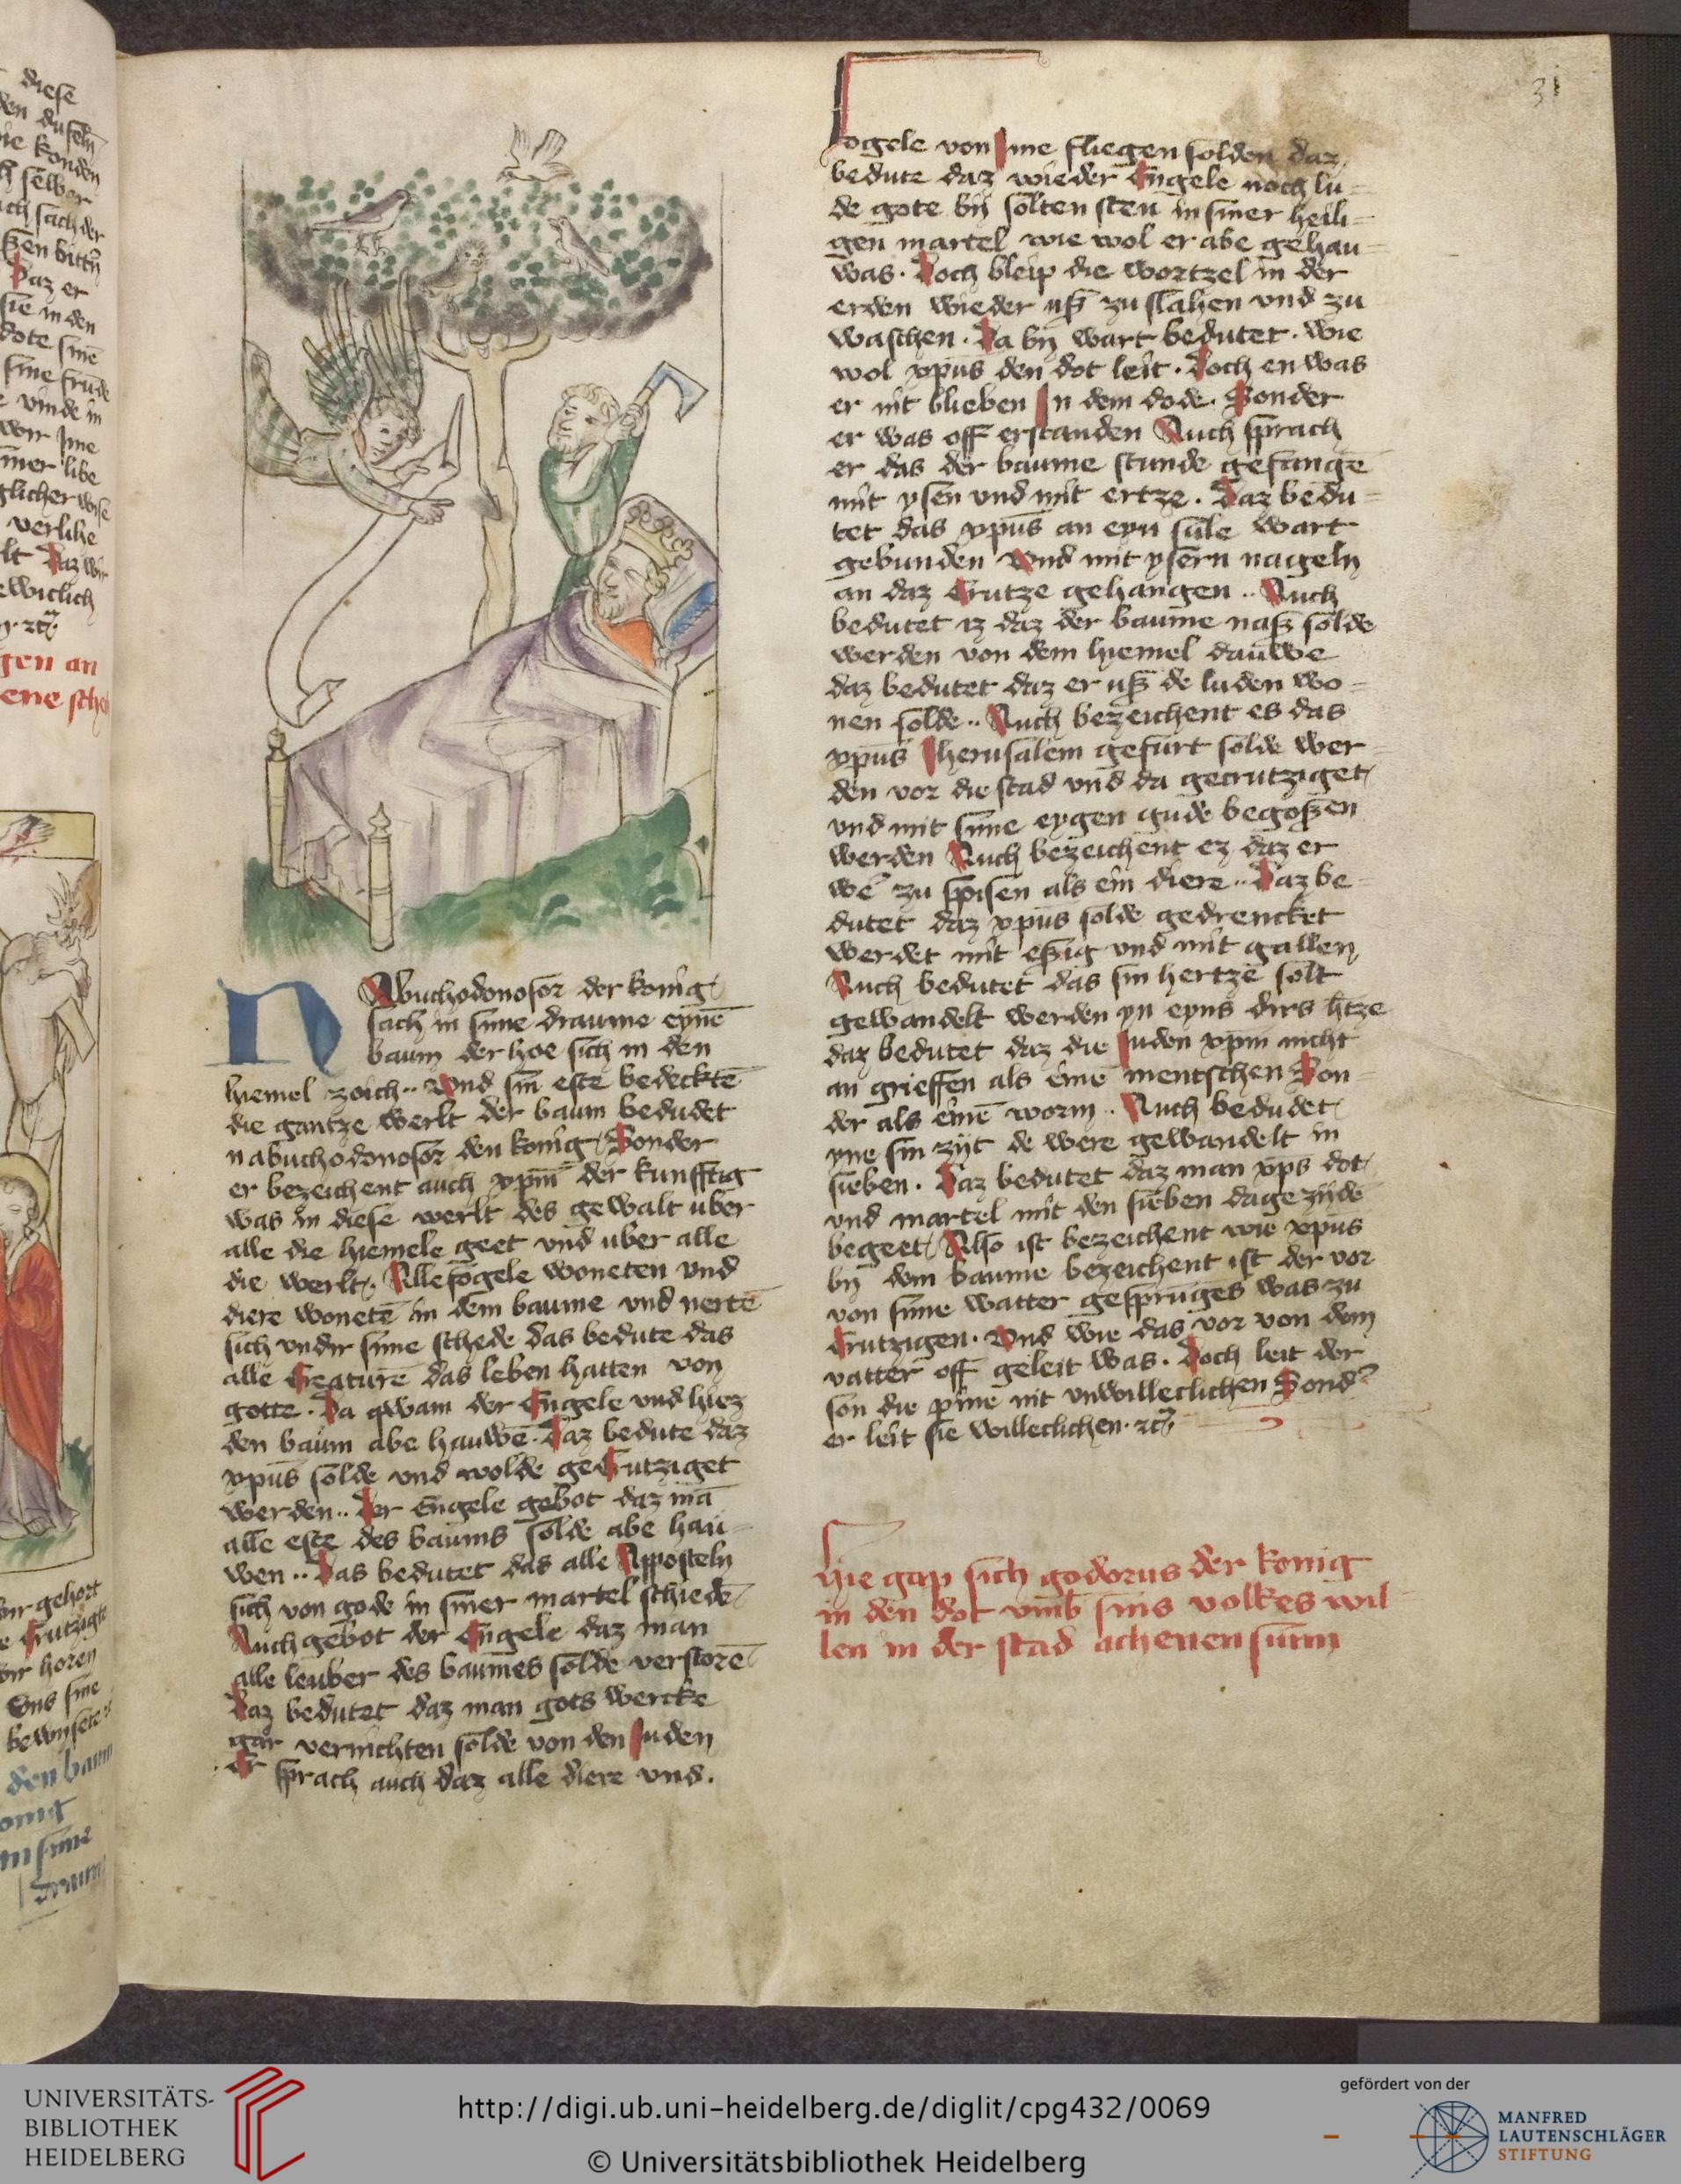 diese
konden
sach der
ßen bittn
Daz er
sie in den
dote sine
sine frude
vinde in
wir Ime
siner libe
glicher wise
verlihe
Daz wir
ewiclich
gen an
ene sche
wir gehort
Crutzigte
wir horen
vns sine
bewisete
den baum
konig
in sine
draum
31
Nabuchodonosor der konig
sach in sime draume eynē
baum der hoe sich in den
hiemel zoich·· Vnd sin este bedecktē
die gantze werlt der baum bedudet
nabuchodonosor den konig Sonder
er bezeichent auch xpm̄ der kunfftig
was in diese werlt des gewalt uber
alle die hiemele geet vnd uber alle
die werlt· Alle fogele woneten vnd
diere wonetē in dem baume vnd nertē
sich vndir sime schede das bedute das
alle Creaturē das leben hatten von
gotte· Da qwam der Engele vnd hiez
den baum abe hauwē· Daz bedute daz
xpūs solde vnd wolde geCrutziget
werden·· Der Engele gebot daz mā
alle este des baums solde abe hau-
wen·· Das bedutet das alle Apposteln
sich von gode in siner martel schiedē
Auch gebot der Engele daz man
alle leuber des baumes solde verstorē
Daz bedutet daz man gots wercke
gar vernichten solde von den Juden
Er sprach auch daz alle diere vnd·
fogele von Ime fliegen solden daz
bedute daz wieder Engele noch lu-
de gote by solten sten in siner heili-
gen martel wie wol er abe gehau-
was· Doch bleip die wortzel in der
erden wieder uß zu slahen vnd zu
waschen· Da by wart bedutet· wie
wol xpūs den dot leit· Doch en was
er nit blieben In dem dode· Sonder
er was off erstanden Auch sprach
er das der baume stunde gefangē
mit ysen vnd mit ertze· Daz bedu-
tet das xpūs an eyn sule wart
gebunden Vnd mit ysern nageln
an daz Crutze gehangen·· Auch
bedutet iz daz der baume naß solde
werden von dem hiemel dauwe
daz bedutet daz er uß de luden wo-
nen solde·· Auch bezeichent es das
xpūs Iherusalem gefurt solde wer-
den vor die stad vnd da gecrutziget
vnd mit sime eygen gude begoßen
werden Auch bezeichent ez daz er
we zu spisen als ein diere·· Daz be-
dutet daz xpūs solde gedrencket
werdet mit eßig vnd mit gallen
Auch bedutet das sin hertze solt
gewandelt werden yn eyns dirs htze
daz bedutet daz die Juden xpm̄ nicht
an grieffen als einē mentschen Son-
der als einē worm·· Auch bedudet
yne sin zijt de were gewandelt in
sieben· Daz bedutet daz man xp̄s dot
vnd martel mit den sieben dage zijdē
begeet Also ist bezeichent wie xpūs
by dem baume bezeichent ist der vor
von sime vatter gesprūges was zu
Crutzigen· Vnd wie das vor von dem
vatter off geleit was· Doch leit der
son die pine nit vnwilleclichen Sond'
er leit sie willeclichen·
Hie gap sich godorus der konig
in den dot vmb sins volkes wil-
len in der stad achenensium
UNIVERSITÄTS-
BIBLIOTHEK
HEIDELBERG
http://digi.ub.uni-heidelberg.de/diglit/cpg432/0069
© Universitätsbibliothek Heidelberg
gefördert von der
MANFRED
LAUTENSCHLÄGER
STIFTUNG